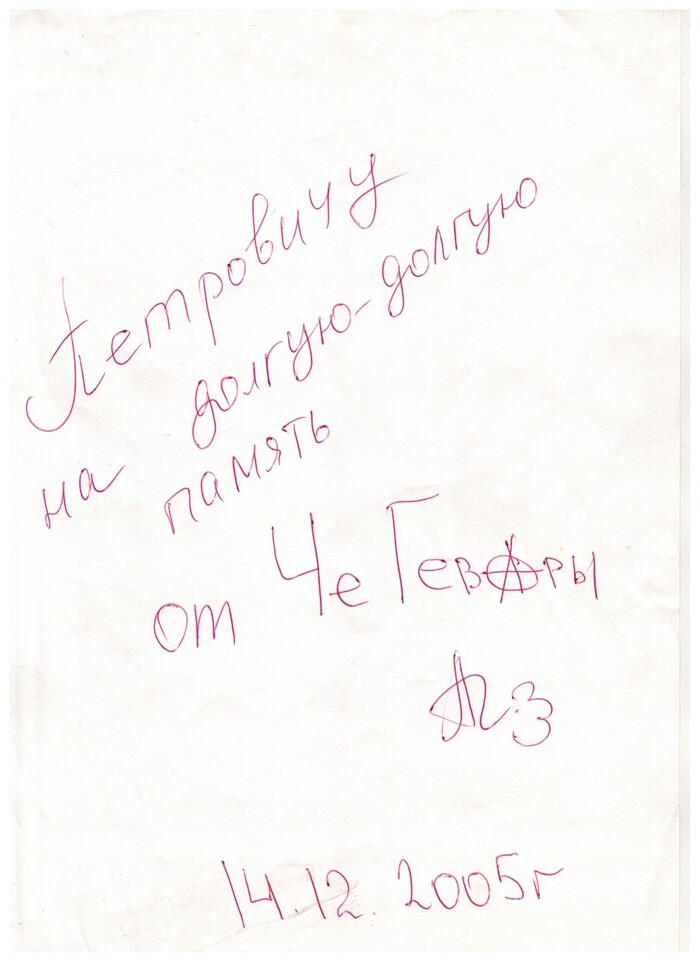 Петровичу
на долгую-долгую
память
от Че Гевары
14.12.2005г